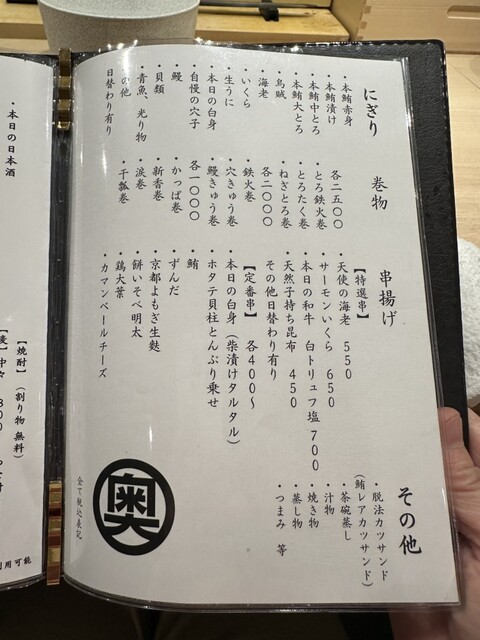 にぎり
・本鮪赤身
・本鮪漬け
・本鮪中とろ
・本鮪大とろ
・烏賊
・海老
・いくら
・生うに
・本日の白身
・自慢の穴子
・鰻
・貝類
・青魚、光り物
の他
日替わり有り
巻物
各二五〇〇
・とろ鉄火巻
・とろたく巻
・ねぎとろ巻
各二〇〇〇
・鉄火巻
・穴きゅう巻
・鰻きゅう巻
各一〇〇〇
・かっぱ巻
・新香巻
・涙巻
・干瓢巻
串揚げ
【特選串】
・天使の海老 550
・サーモンいくら 650
・本日の和牛 白トリュフ塩 700
・天然子持ち昆布 450
その他日替わり有り
【定番串】 各400〜
・本日の白身(柴漬けタルタル)
・ホタテ貝柱とんぶり乗せ
・鮪
・ずんだ
・京都よもぎ生麩
・餅いそべ明太
・鶏大葉
・カマンベールチーズ
その他
脱法カツサンド
(鮪レアカツサンド)
・茶碗蒸し
・汁物
・焼き物
・蒸し物
・つまみ 等
奥
全て税込表記
・本日の日本酒
【焼酎】(割り物 無料)
利用可能